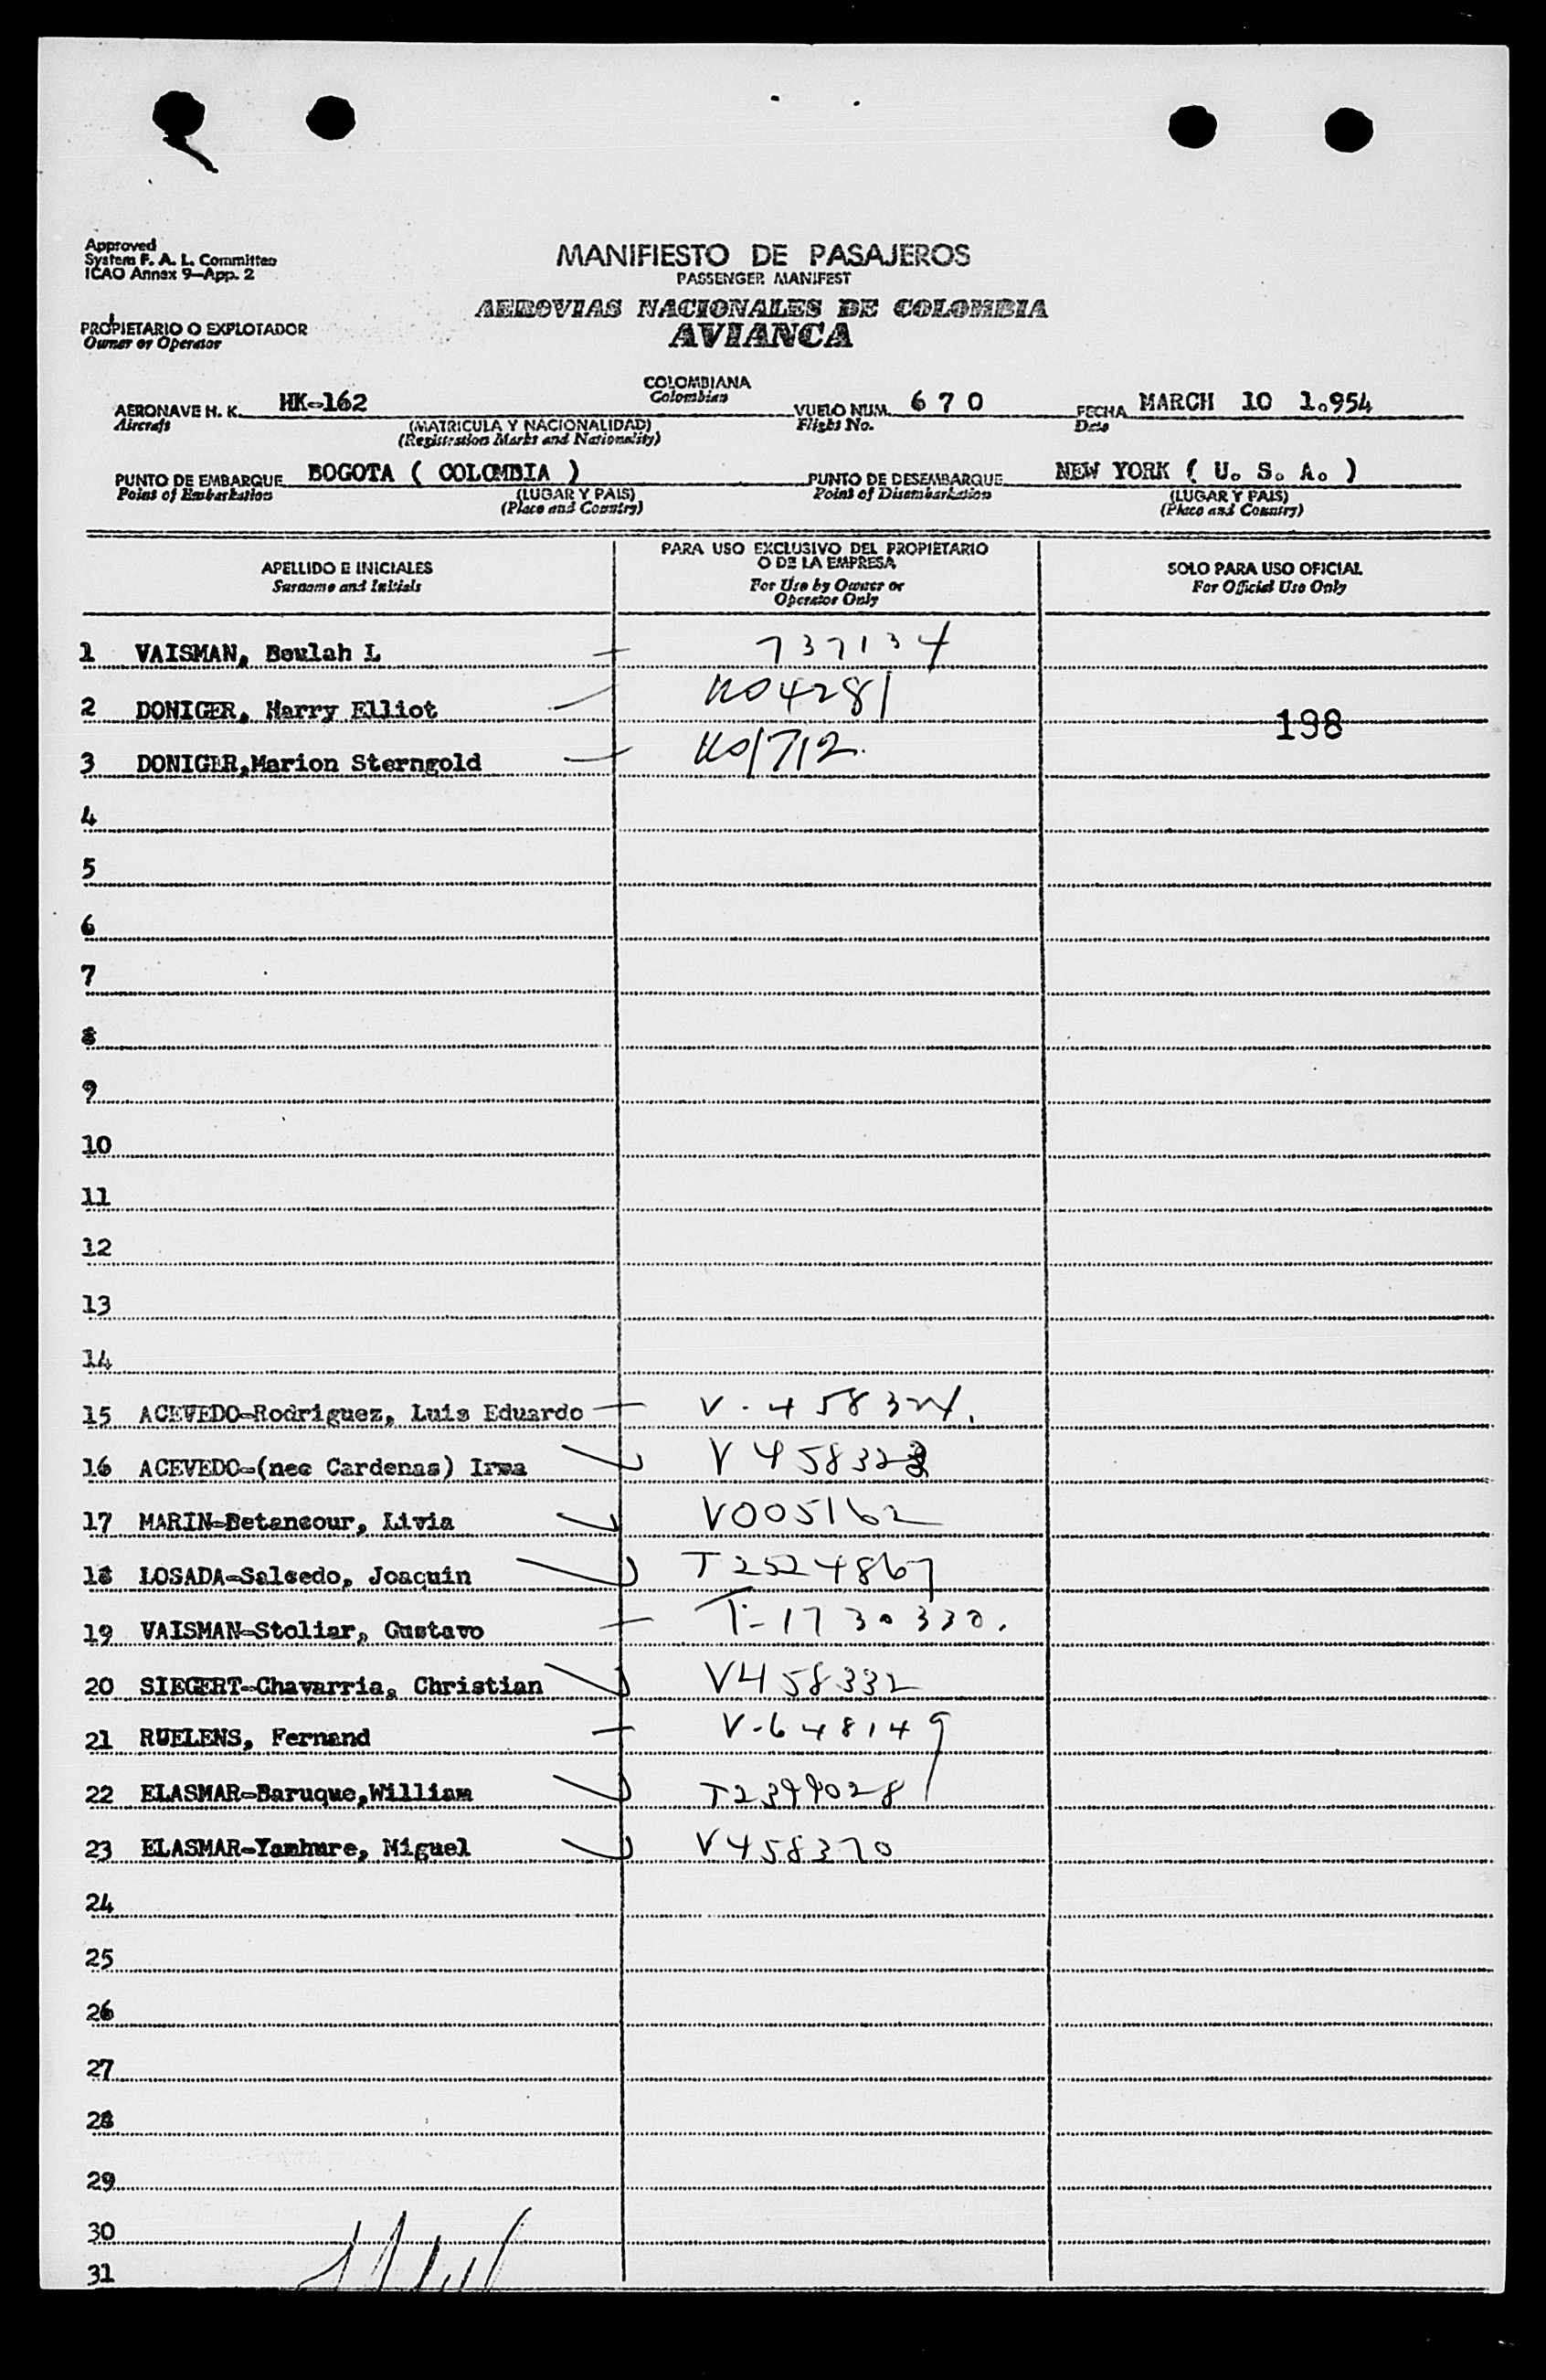 Approved
System F. A. L. Committee
ICAO Annex 9—App. 2
MANIFIESTO DE PASAJEROS
PASSENGER MANIFEST
AEROVIAS NACIONALES DE COLOMBIA
AVIANCA
PROPIETARIO O EXPLOTADOR
Owner or Operator
COLOMBIANA
Colombian
AERONAVE H. K. HK-162 VUELO NUM. 6 7 0 FECHA MARCH 10 1.954
Aircraft (MATRICULA Y NACIONALIDAD) Flight No. Date
(Registration Marks and Nationality)
PUNTO DE EMBARQUE BOGOTA ( COLOMBIA ) PUNTO DE DESEMBARQUE NEW YORK ( U. S. A. )
Point of Embarkation (LUGAR Y PAIS) Point of Disembarkation (LUGAR Y PAIS)
(Place and Country) (Place and Country)
APELLIDO E INICIALES
Surname and Initials
PARA USO EXCLUSIVO DEL PROPIETARIO
O DE LA EMPRESA
For Use by Owner or
Operator Only
SOLO PARA USO OFICIAL
For Official Use Only
1 VAISMAN, Beulah L 737134
2 DONIGER, Harry Elliot 198
3 DONIGER,Marion Sterngold
4
5
6
7
8
9
10
11
12
13
14
15 ACEVEDO-Rodriguez, Luis Eduardo V-458324.
16 ACEVEDO-(nee Cardenas) Irma
17 MARIN-Betancour, Livia V005162
18 LOSADA-Salcedo, Joaquin T2524867
19 VAISMAN-Stoliar, Gustavo T-1730330.
20 SIEGERT-Chavarria, Christian V458332
21 RUELENS, Fernand V-648149
22 ELASMAR-Baruque,William
23 ELASMAR-Yamhure, Miguel V458370
24
25
26
27
28
29
30
31